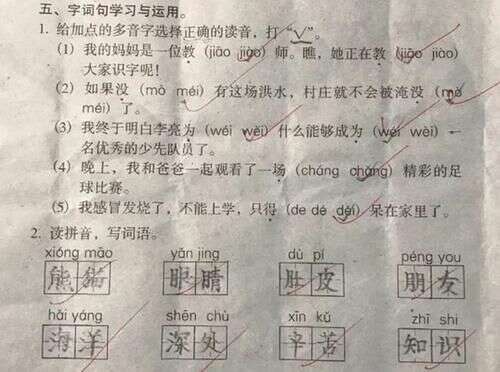 五、字词句学习与运用。
1. 给加点的多音字选择正确的读音，打“√”。
(1) 我的妈妈是一位教（jiāo jiào）师。瞧，她正在教（jiāo jiào）
大家识字呢！
(2) 如果没（mò méi）有这场洪水，村庄就不会被淹没（mò
méi）了。
(3) 我终于明白李亮为（wéi wèi）什么能够成为（wéi wèi）一
名优秀的少先队员了。
(4) 晚上，我和爸爸一起观看了一场（cháng chǎng）精彩的足
球比赛。
(5) 我感冒发烧了，不能上学，只得（de dé děi）呆在家里了。
2. 读拼音，写词语。
xióng māo yǎn jing dù pí péng you
熊猫 眼睛 肚皮 朋友
hǎi yáng shēn chù xīn kǔ zhī shi
海洋 深处 辛苦 知识